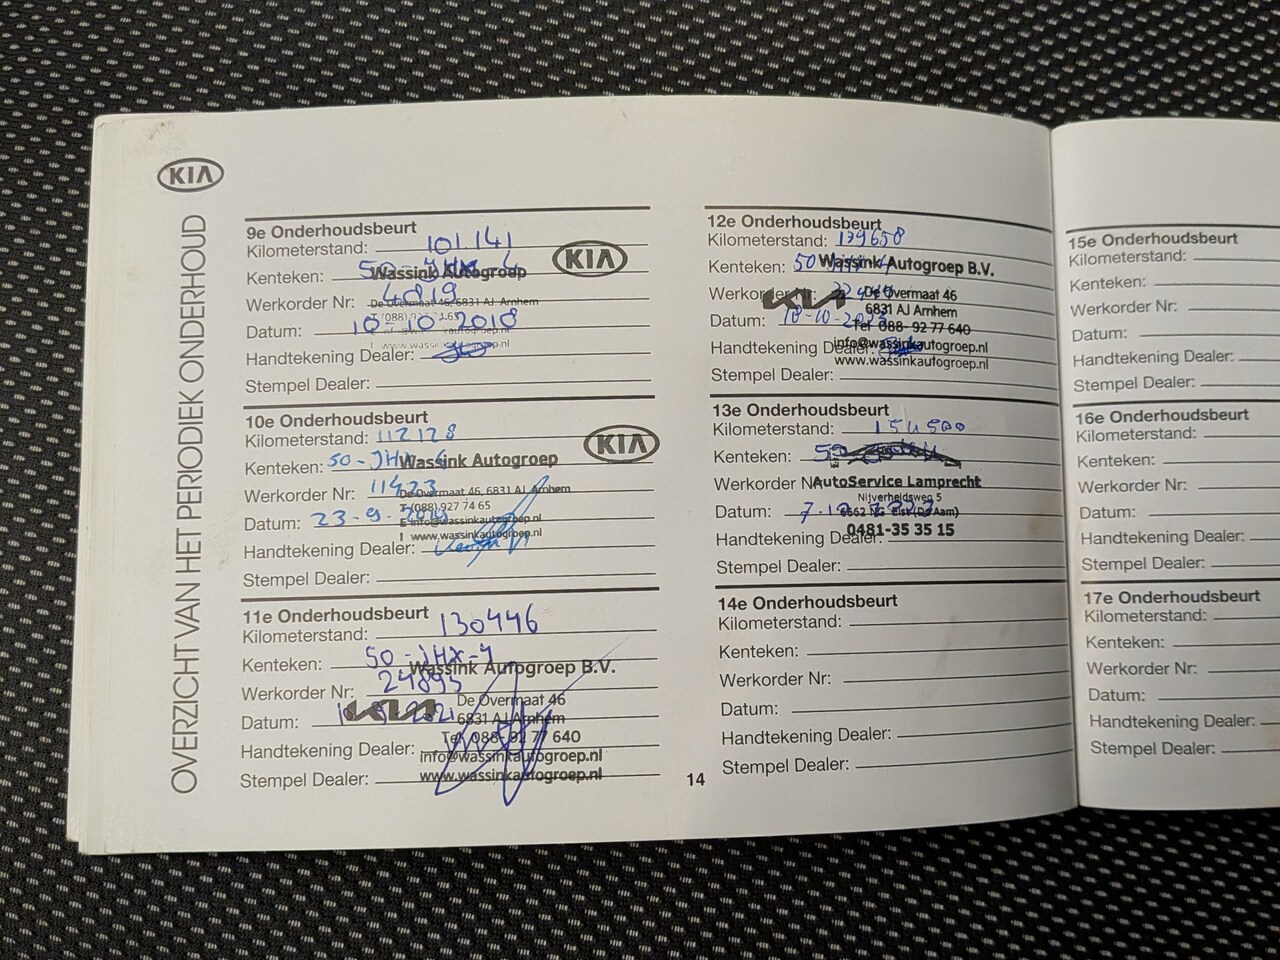 KIA
OVERZICHT VAN HET PERIODIEK ONDERHOUD
9e Onderhoudsbeurt
Kilometerstand: 101.141
KIA
Kenteken: 50-JHX-4
Wassink Autogroep
Werkorder Nr: 4819
De Overmaat 46, 6831 AJ Arnhem
Datum: 10-10-2018
www.wassinkautogroep.nl
Handtekening Dealer:
Stempel Dealer:
10e Onderhoudsbeurt
Kilometerstand: 112128
KIA
Kenteken: 50-JHX-4
Wassink Autogroep
Werkorder Nr: 11423
De Overmaat 46, 6831 AJ Arnhem
T (088) 927 74 65
Datum: 23-9-2019
E info@wassinkautogroep.nl
I www.wassinkautogroep.nl
Handtekening Dealer:
Stempel Dealer:
11e Onderhoudsbeurt
Kilometerstand: 130446
Kenteken: 50-JHX-4
Wassink Autogroep B.V.
Werkorder Nr: 24893
De Overmaat 46
Datum:
KIA
6831 AJ Arnhem
Tel. 088- 92 77 640
Handtekening Dealer:
info@wassinkautogroep.nl
Stempel Dealer:
www.wassinkautogroep.nl
12e Onderhoudsbeurt
Kilometerstand: 139658
Kenteken: 50
Wassink Autogroep B.V.
Werkorder Nr:
KIA
De Overmaat 46
6831 AJ Arnhem
Datum: 10-10-2022
Tel 088- 92 77 640
Handtekening Dealer:
info@wassinkautogroep.nl
www.wassinkautogroep.nl
Stempel Dealer:
13e Onderhoudsbeurt
Kilometerstand: 154500
Kenteken: 50
Werkorder Nr:
AutoService Lamprecht
Nijverheidsweg 5
Datum:
6662 NG Elst (De Aam)
0481-35 35 15
Handtekening Dealer:
Stempel Dealer:
14e Onderhoudsbeurt
Kilometerstand:
Kenteken:
Werkorder Nr:
Datum:
Handtekening Dealer:
Stempel Dealer:
14
15e Onderhoudsbeurt
Kilometerstand:
Kenteken:
Werkorder Nr:
Datum:
Handtekening Dealer:
Stempel Dealer:
16e Onderhoudsbeurt
Kilometerstand:
Kenteken:
Werkorder Nr:
Datum:
Handtekening Dealer:
Stempel Dealer:
17e Onderhoudsbeurt
Kilometerstand:
Kenteken:
Werkorder Nr:
Datum:
Handtekening Dealer:
Stempel Dealer: